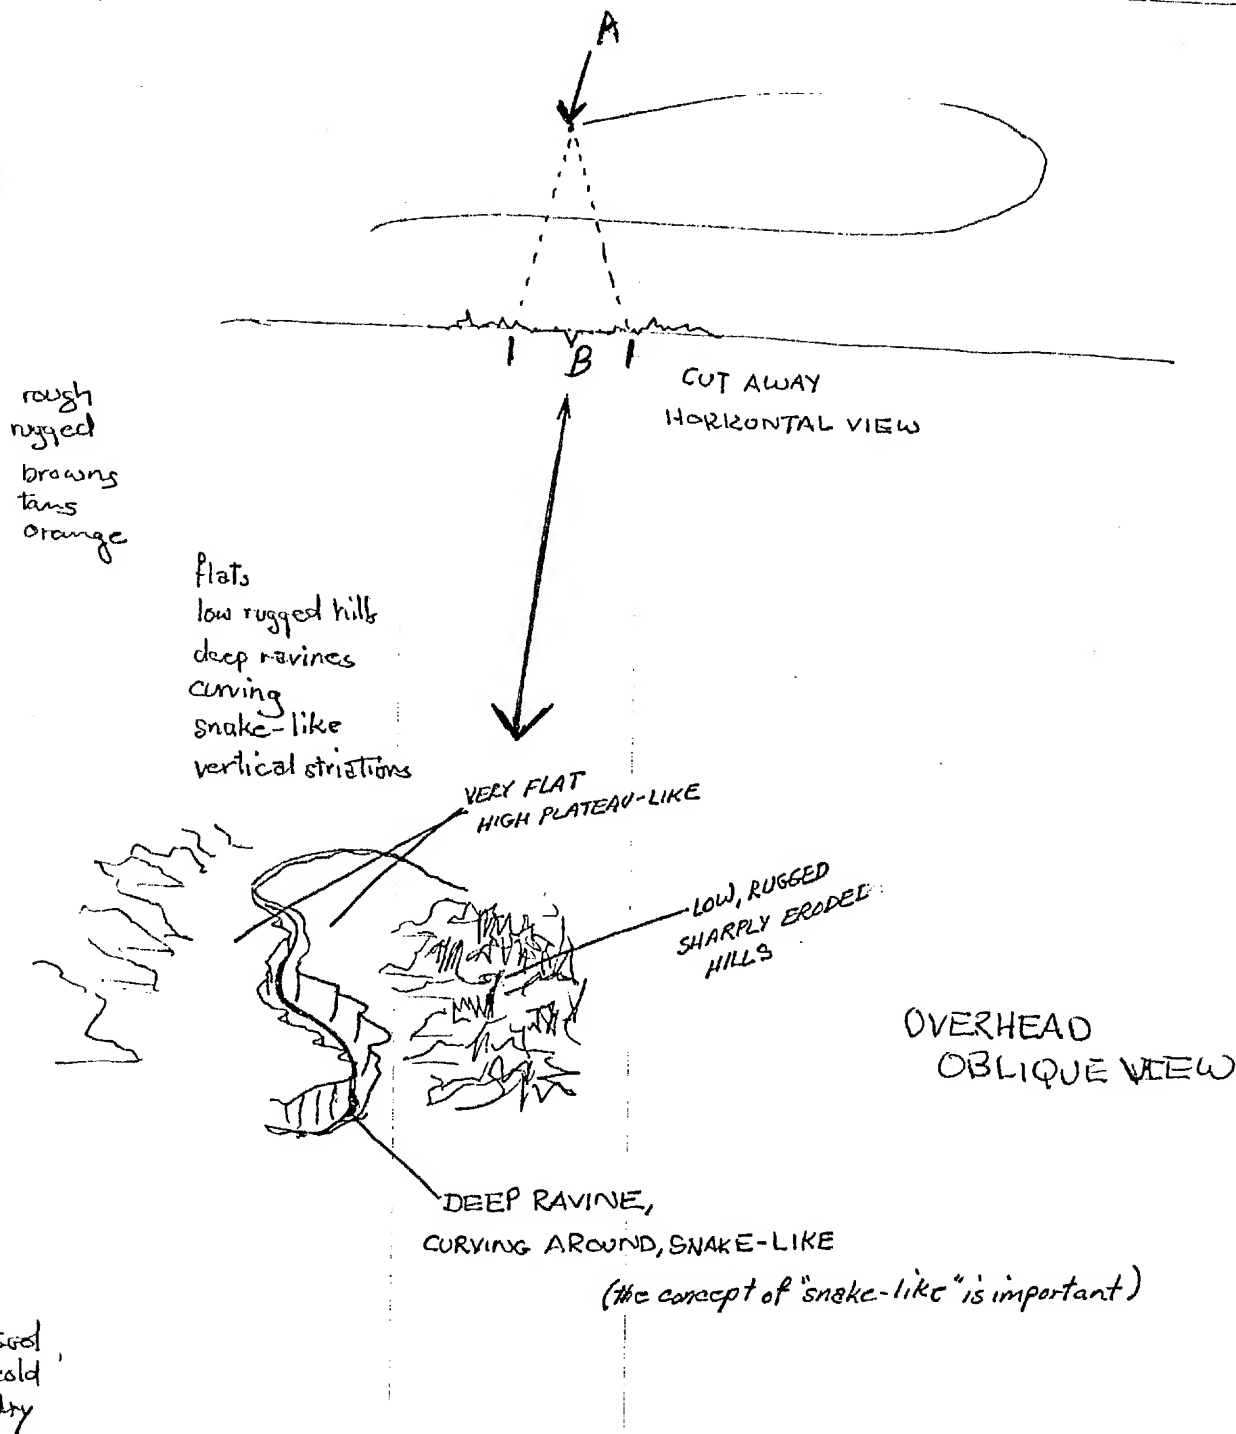 A
B
CUT AWAY
HORIZONTAL VIEW
rough
rugged
browns
tans
orange
flats
low rugged hills
deep ravines
curving
snake-like
vertical striations
VERY FLAT
HIGH PLATEAU-LIKE
LOW, RUGGED
SHARPLY ERODED
HILLS
OVERHEAD
OBLIQUE VIEW
DEEP RAVINE,
CURVING AROUND, SNAKE-LIKE
(the concept of "snake-like" is important)
cold
dry